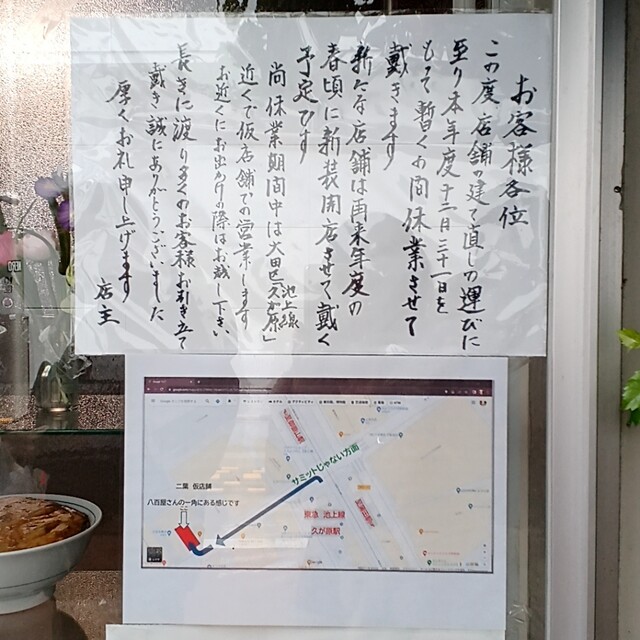 お客様各位
この度店舗の建て直しの運びに
至り本年度十二月三十一日を
もって暫くお間休業させて
戴きます
新たな店舗は再来年度の
春頃に新装開店させて戴く
予定です
尚休業期間中は大田区池上線「久が原」
近くで仮店舗での営業します
お近くにお出かけの際はお越し下さい
長きに渡り多くのお客様お引き立て
戴き誠にありがとうございました
厚くお礼申し上げます
店主
サミットじゃない方面
二葉 仮店舗
八百屋さんの一角にある感じです
東急 池上線
久が原駅